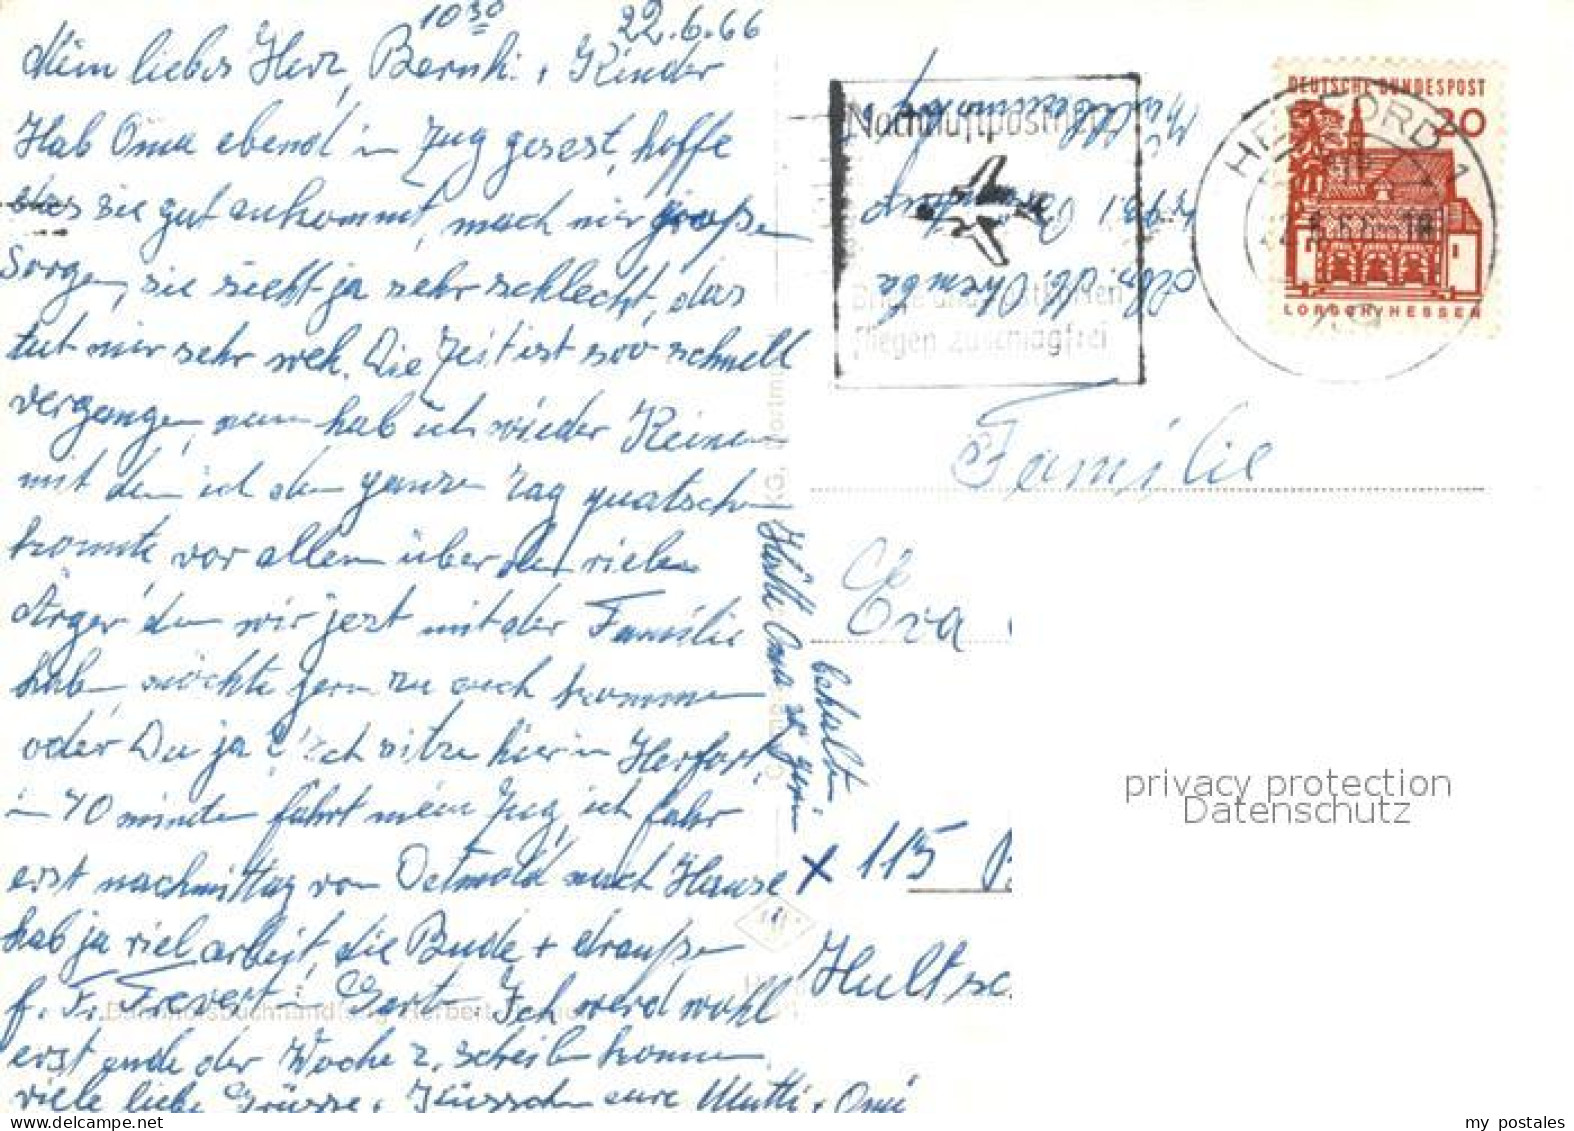 10 30 22.6.66
Mein liebes Herz, Bernh. + Kinder
Hab Oma ebend in Zug gesest, hoffe
das sie gut ankommt, mach mir große
Sorgen, sie sieht ja sehr schlecht, das
tut mir sehr weh. Die Zeit ist soo schnell
vergangen, nun hab ich wieder Keinen
mit dem ich den ganzen Tag quatschen
konnte vor allem über den vielen
Ärger den wir jezt mit der Familie
haben, möchte gern zu euch kommen
oder Du ja! Ich sitze hier in Herfort,
in 40 minuten fährt mein Zug, ich fahr
erst nachmittag von Detmold nach Hause
hab ja viel arbeit, die Bude + draußen
f. Fr. Frevert i. Garten. Ich werd wohl
erst ende der Woche z. schreiben kommen
viele liebe Grüsse + Küsschen eure Mutti + Omi
Hätte Oma so gern
behalten
Nachtluftpostnetz
Briefe und Postkarten
fliegen zuschlagfrei
DEUTSCHE BUNDESPOST
20
LORSCH/HESSEN
HERFORD 1
Familie
Eva
+ 115
Hultsc
privacy protection
Datenschutz
my postales